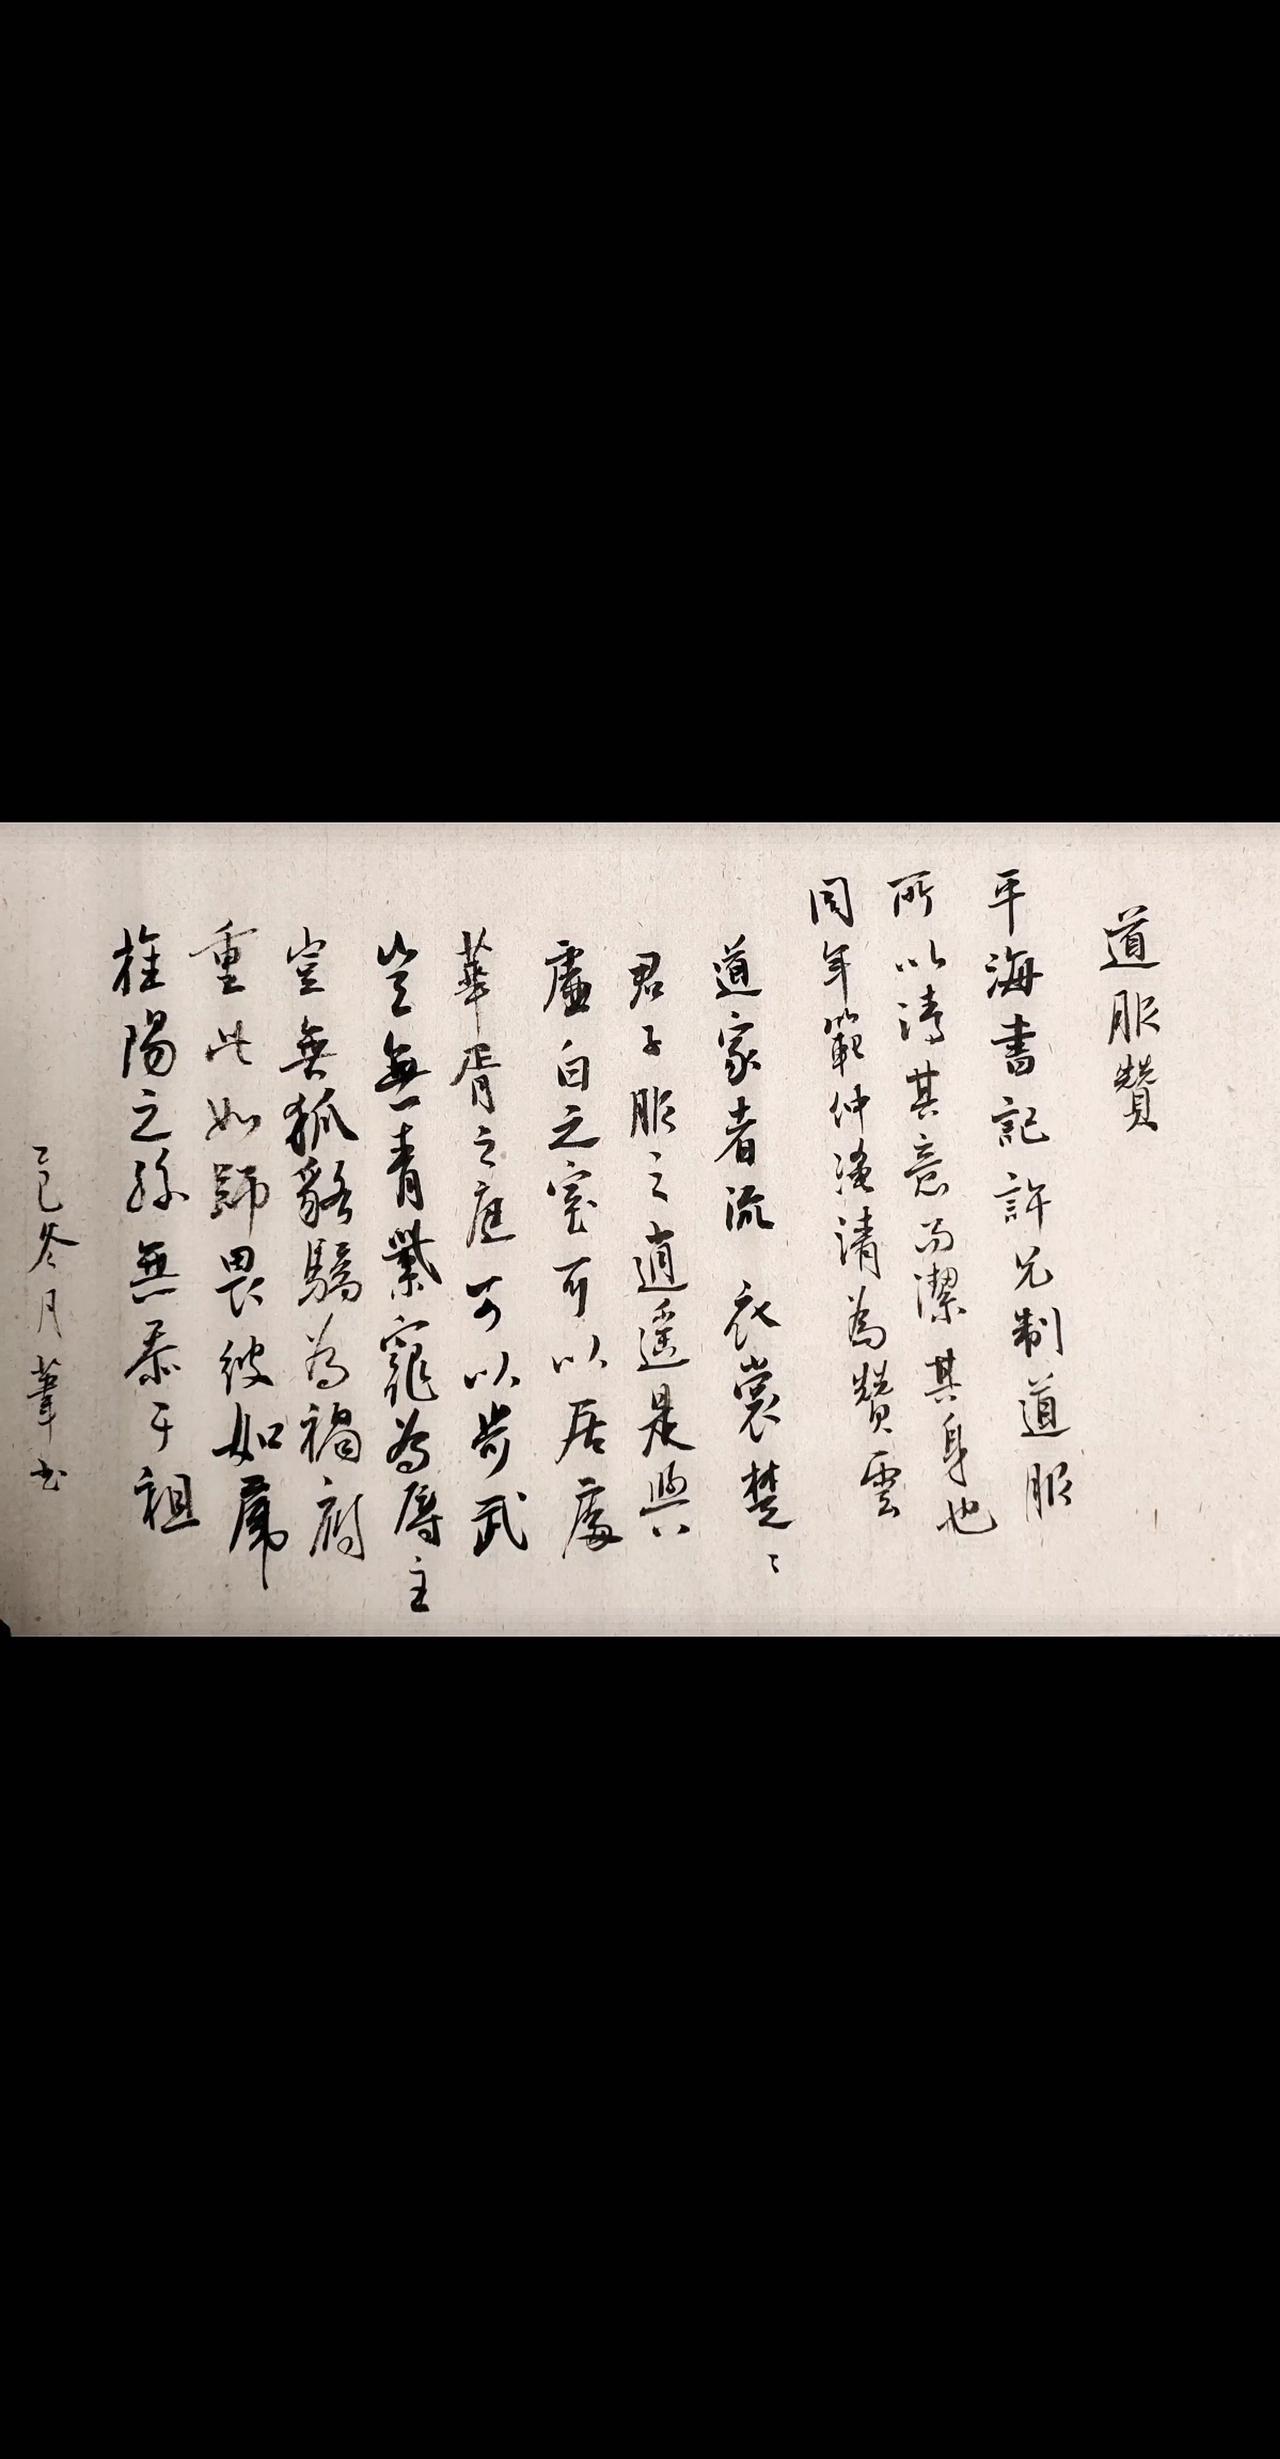 道服贊
平海書記許兄制道服
所以清其意而潔其身也
同年範仲淹請為贊雲
道家者流衣裳楚〻
君子服之逍遥是與
虛白之室可以居處
華胥之庭可以步武
豈無青紫寵為辱主
豈無狐貉驕為禍府
重此如師畏彼如虎
旌陽之孫無忝于祖
乙巳冬月葦书